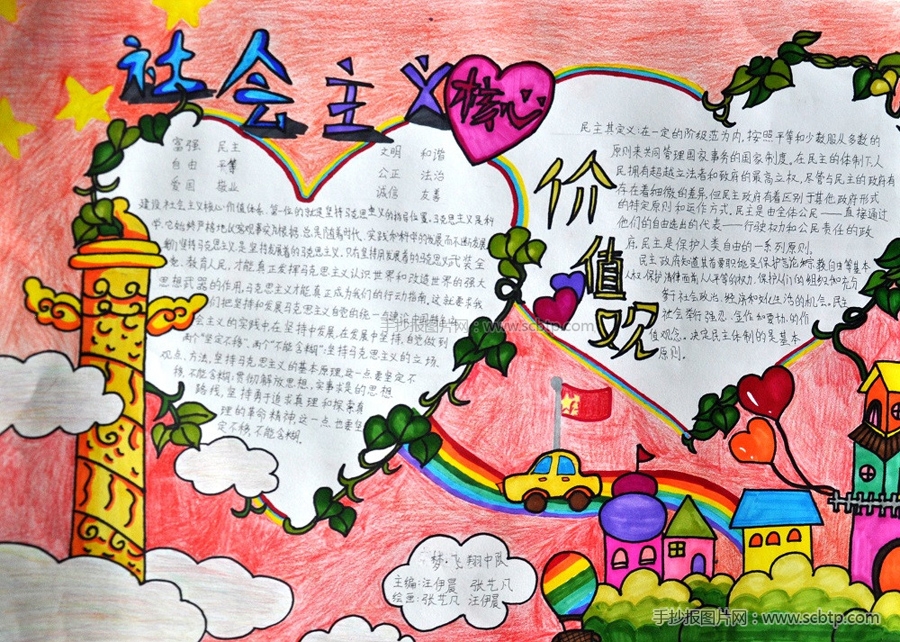 社会主义核心
价值观
富强 民主
自由 平等
爱国 敬业
文明 和谐
公正 法治
诚信 友善
建设社会主义核心价值体系,第一位的就是坚持马克思主义的指导地位。马克思主义是科
学,它始终严格地以客观事实为根据
实践和科学的发展而不断发展
坚持马克思主义,是坚持发展着的马克思主义。只有坚持用发展着的马克思主义武装全
党、教育人民,才能真正发挥马克思主义认识世界和改造世界的强大
思想武器的作用,马克思主义才能真正成为我们的行动指南。这就要求我
们把坚持和发展马克思主义自觉的统一
会主义的实践中在坚持中发展,在发展中坚持,自觉做到
两个"坚定不移",两个"不能含糊":坚持马克思主义的立场、
观点、方法,坚持马克思主义的基本原理,这一点要坚定不
移,不能含糊;贯彻解放思想,实事求是的思想
路线,坚持勇于追求真理和探索真
理的革命精神,这一点也要坚
定不移,不能含糊。
民主其定义:在一定的阶级范为内,按照平等和少数服从多数的
原则来共同管理国家事务的国家制度。在民主的体制下,人
民拥有超越立法者和政府的最高立权。尽管与民主的政府有
存在着细微的差异,但民主政府有着区别于其他政府形式
的特定原则和运作方式。民主是由全体公民——直接通过
他们的自由选出的代表——行驶权力和公民责任的政
府,民主是保护人类自由的一系列原则。
民主政府知道其首要职能是保护言论
宗教自由等基本
人权,保护法律面前人人平等的权力,保护人们的组织和充分
参于社会政治、经济和文化生活的机会。民主
社会奉行
合作和妥协的价
值观念。决定民主体制的是基本
原则。
手抄报图片网:www.scbtp.com
梦·飞翔中队
主编:汪伊晨 张艺凡
绘画:张艺凡 汪伊晨
手抄报图片网:www.scbtp.com